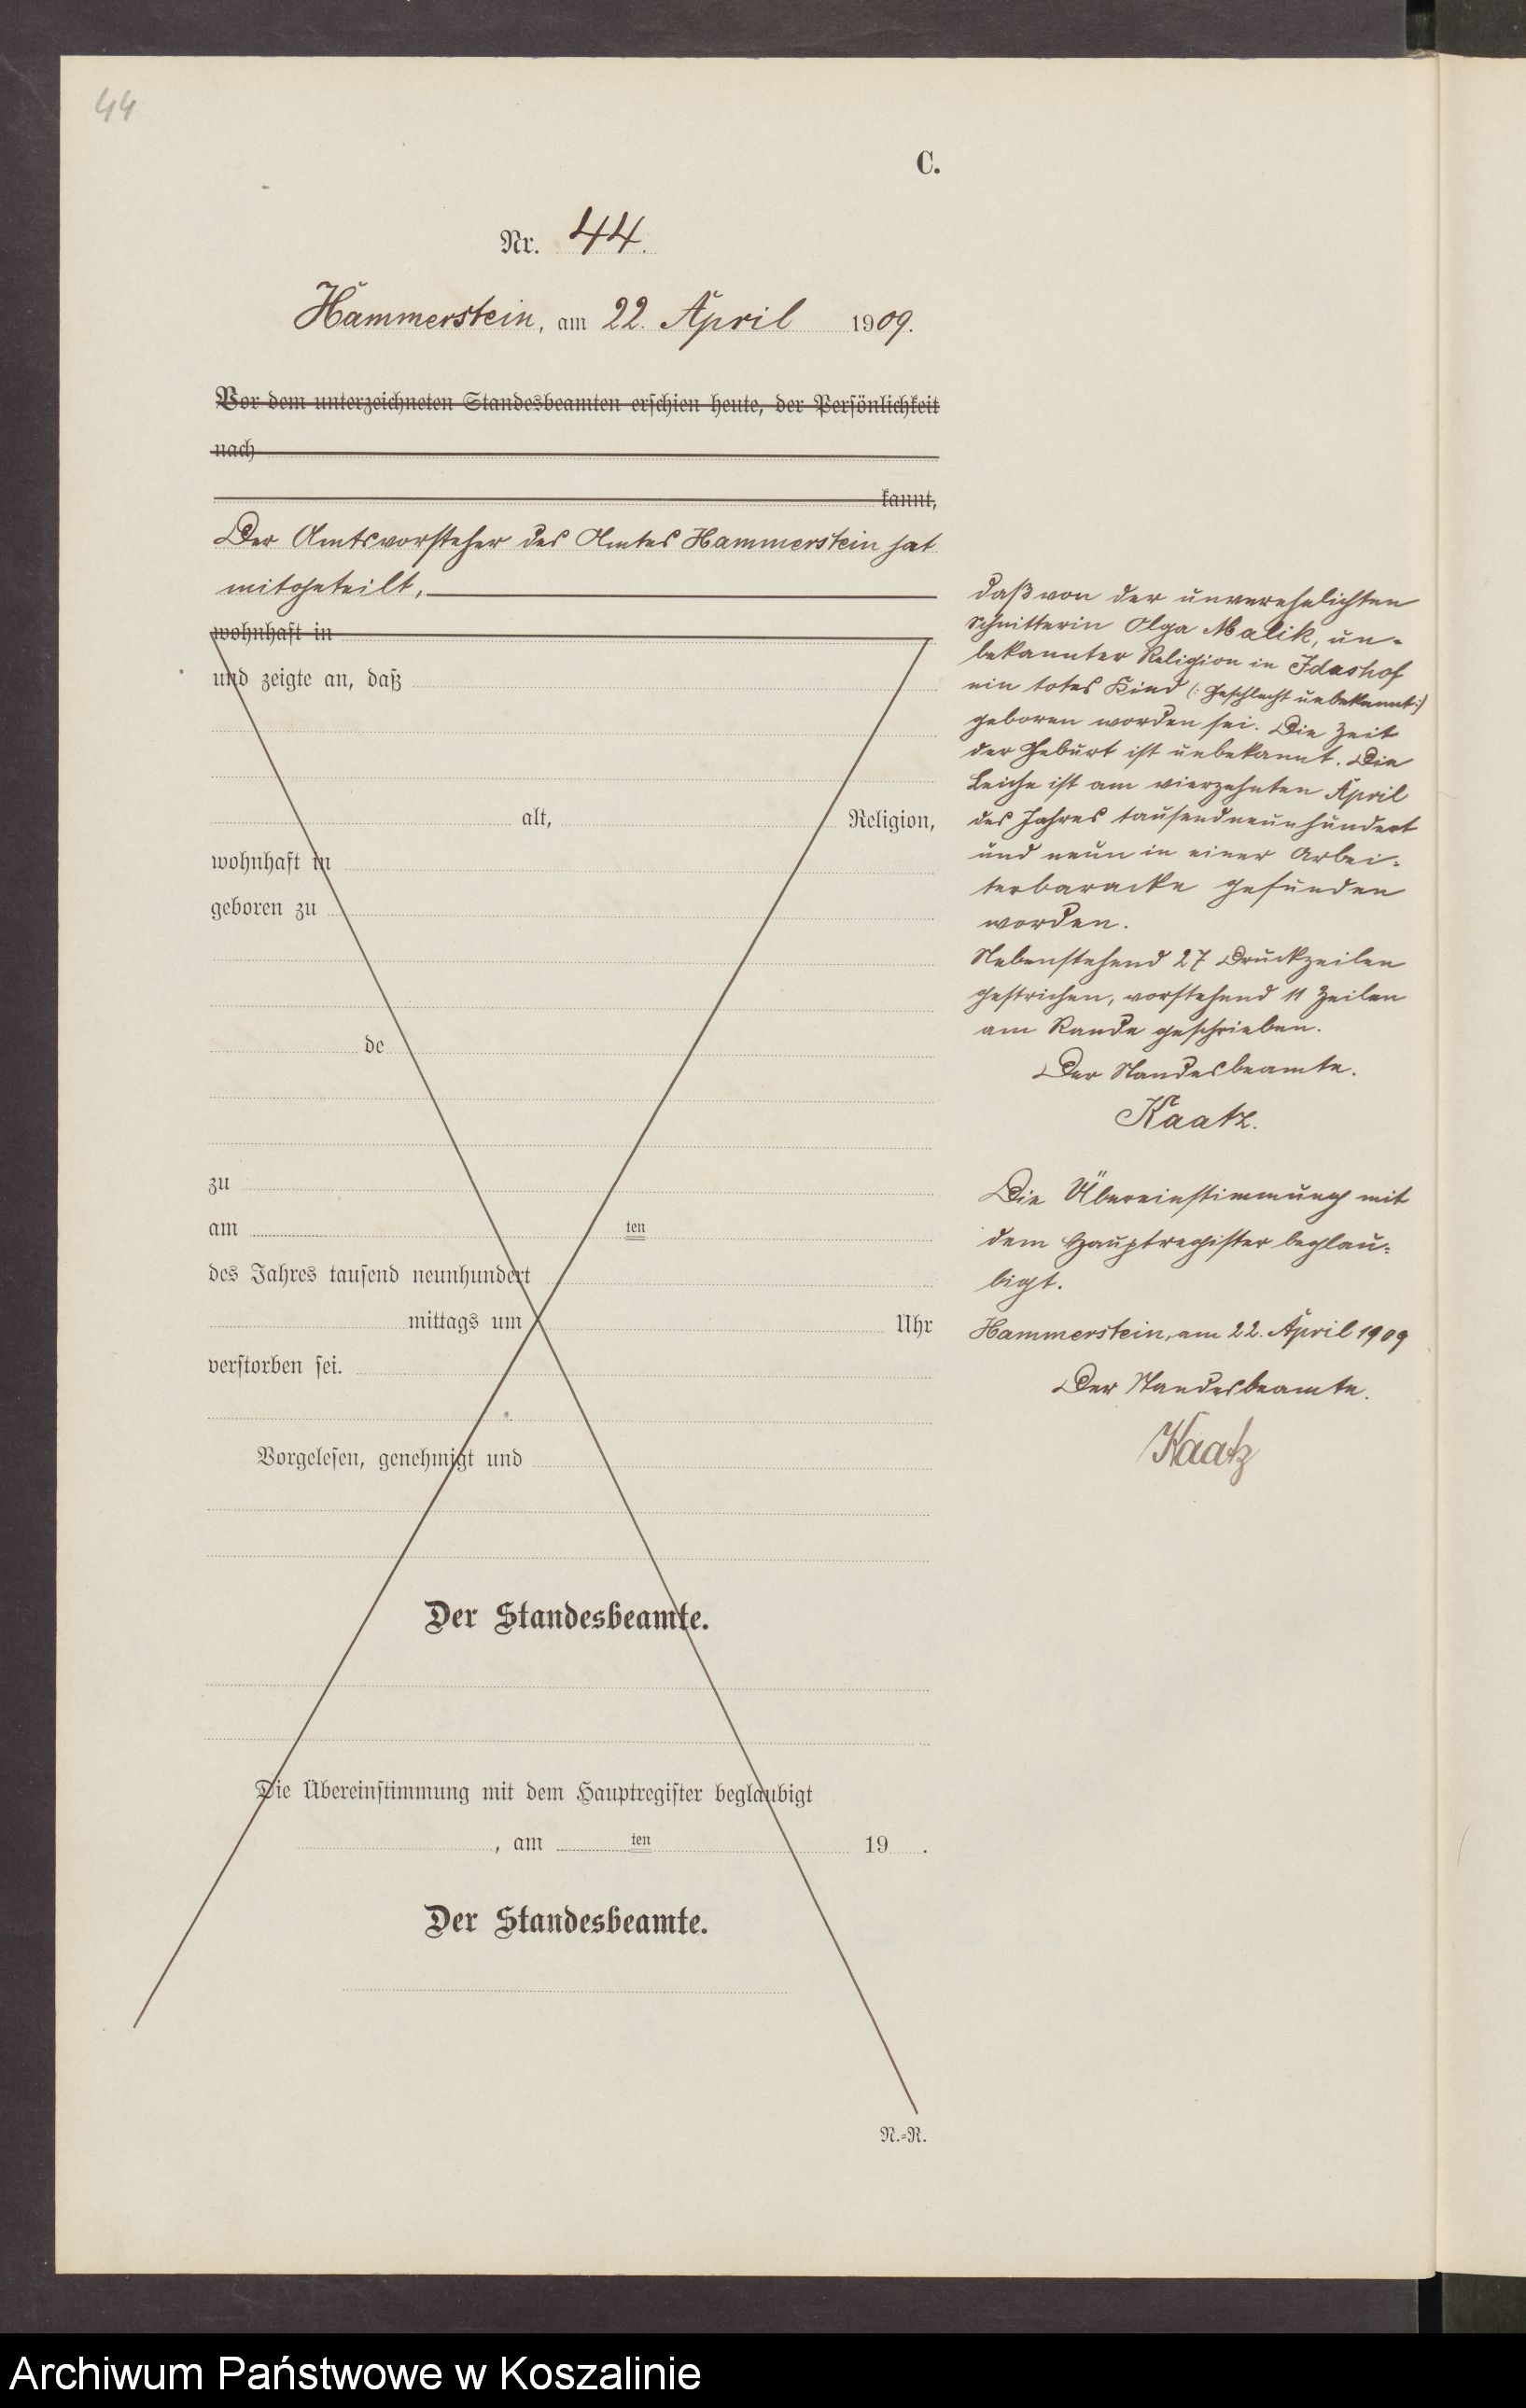 44
C.
Nr. 44.
Hammerstein, am 22. April 1909.
Vor dem unterzeichneten Standesbeamten erschien heute, der Persönlichkeit
nach
kannt,
Der Amtsvorsteher des Amtes Hammerstein hat
mitgeteilt,
wohnhaft in
und zeigte an, daß
alt, Religion,
wohnhaft in
geboren zu
de
zu
am ten
des Jahres tausend neunhundert
mittags um Uhr
verstorben sei.
Vorgelesen, genehmigt und
Der Standesbeamte.
Die Übereinstimmung mit dem Hauptregister beglaubigt
, am ten 19 .
Der Standesbeamte.
N.=R.
daß von der unverehelichten
Schnitterin Olga Malik, un-
bekannter Religion in Idashof
ein totes Kind (: Geschlecht unbekannt :)
geboren worden sei. Die Zeit
der Geburt ist unbekannt. Die
Leiche ist am vierzehnten April
des Jahres tausendneunhundert
und neun in einer Arbei-
terbaracke gefunden
worden.
Nebenstehend 27 Druckzeilen
gestrichen, vorstehend 11 Zeilen
am Rande geschrieben.
Der Standesbeamte.
Kaatz.
Die Übereinstimmung mit
dem Hauptregister beglau-
bigt.
Hammerstein, am 22. April 1909
Der Standesbeamte.
Kaatz
Archiwum Państwowe w Koszalinie